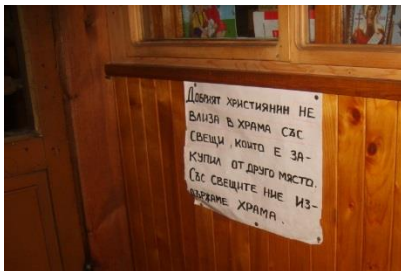 ДОБРИЯТ ХРИСТИЯНИН НЕ
ВЛИЗА В ХРАМА СЪС
СВЕЩИ, КОИТО Е ЗА-
КУПИЛ ОТ ДРУГО МЯСТО.
СЪС СВЕЩИТЕ НИЕ ИЗ-
ДЪРЖАМЕ ХРАМА.